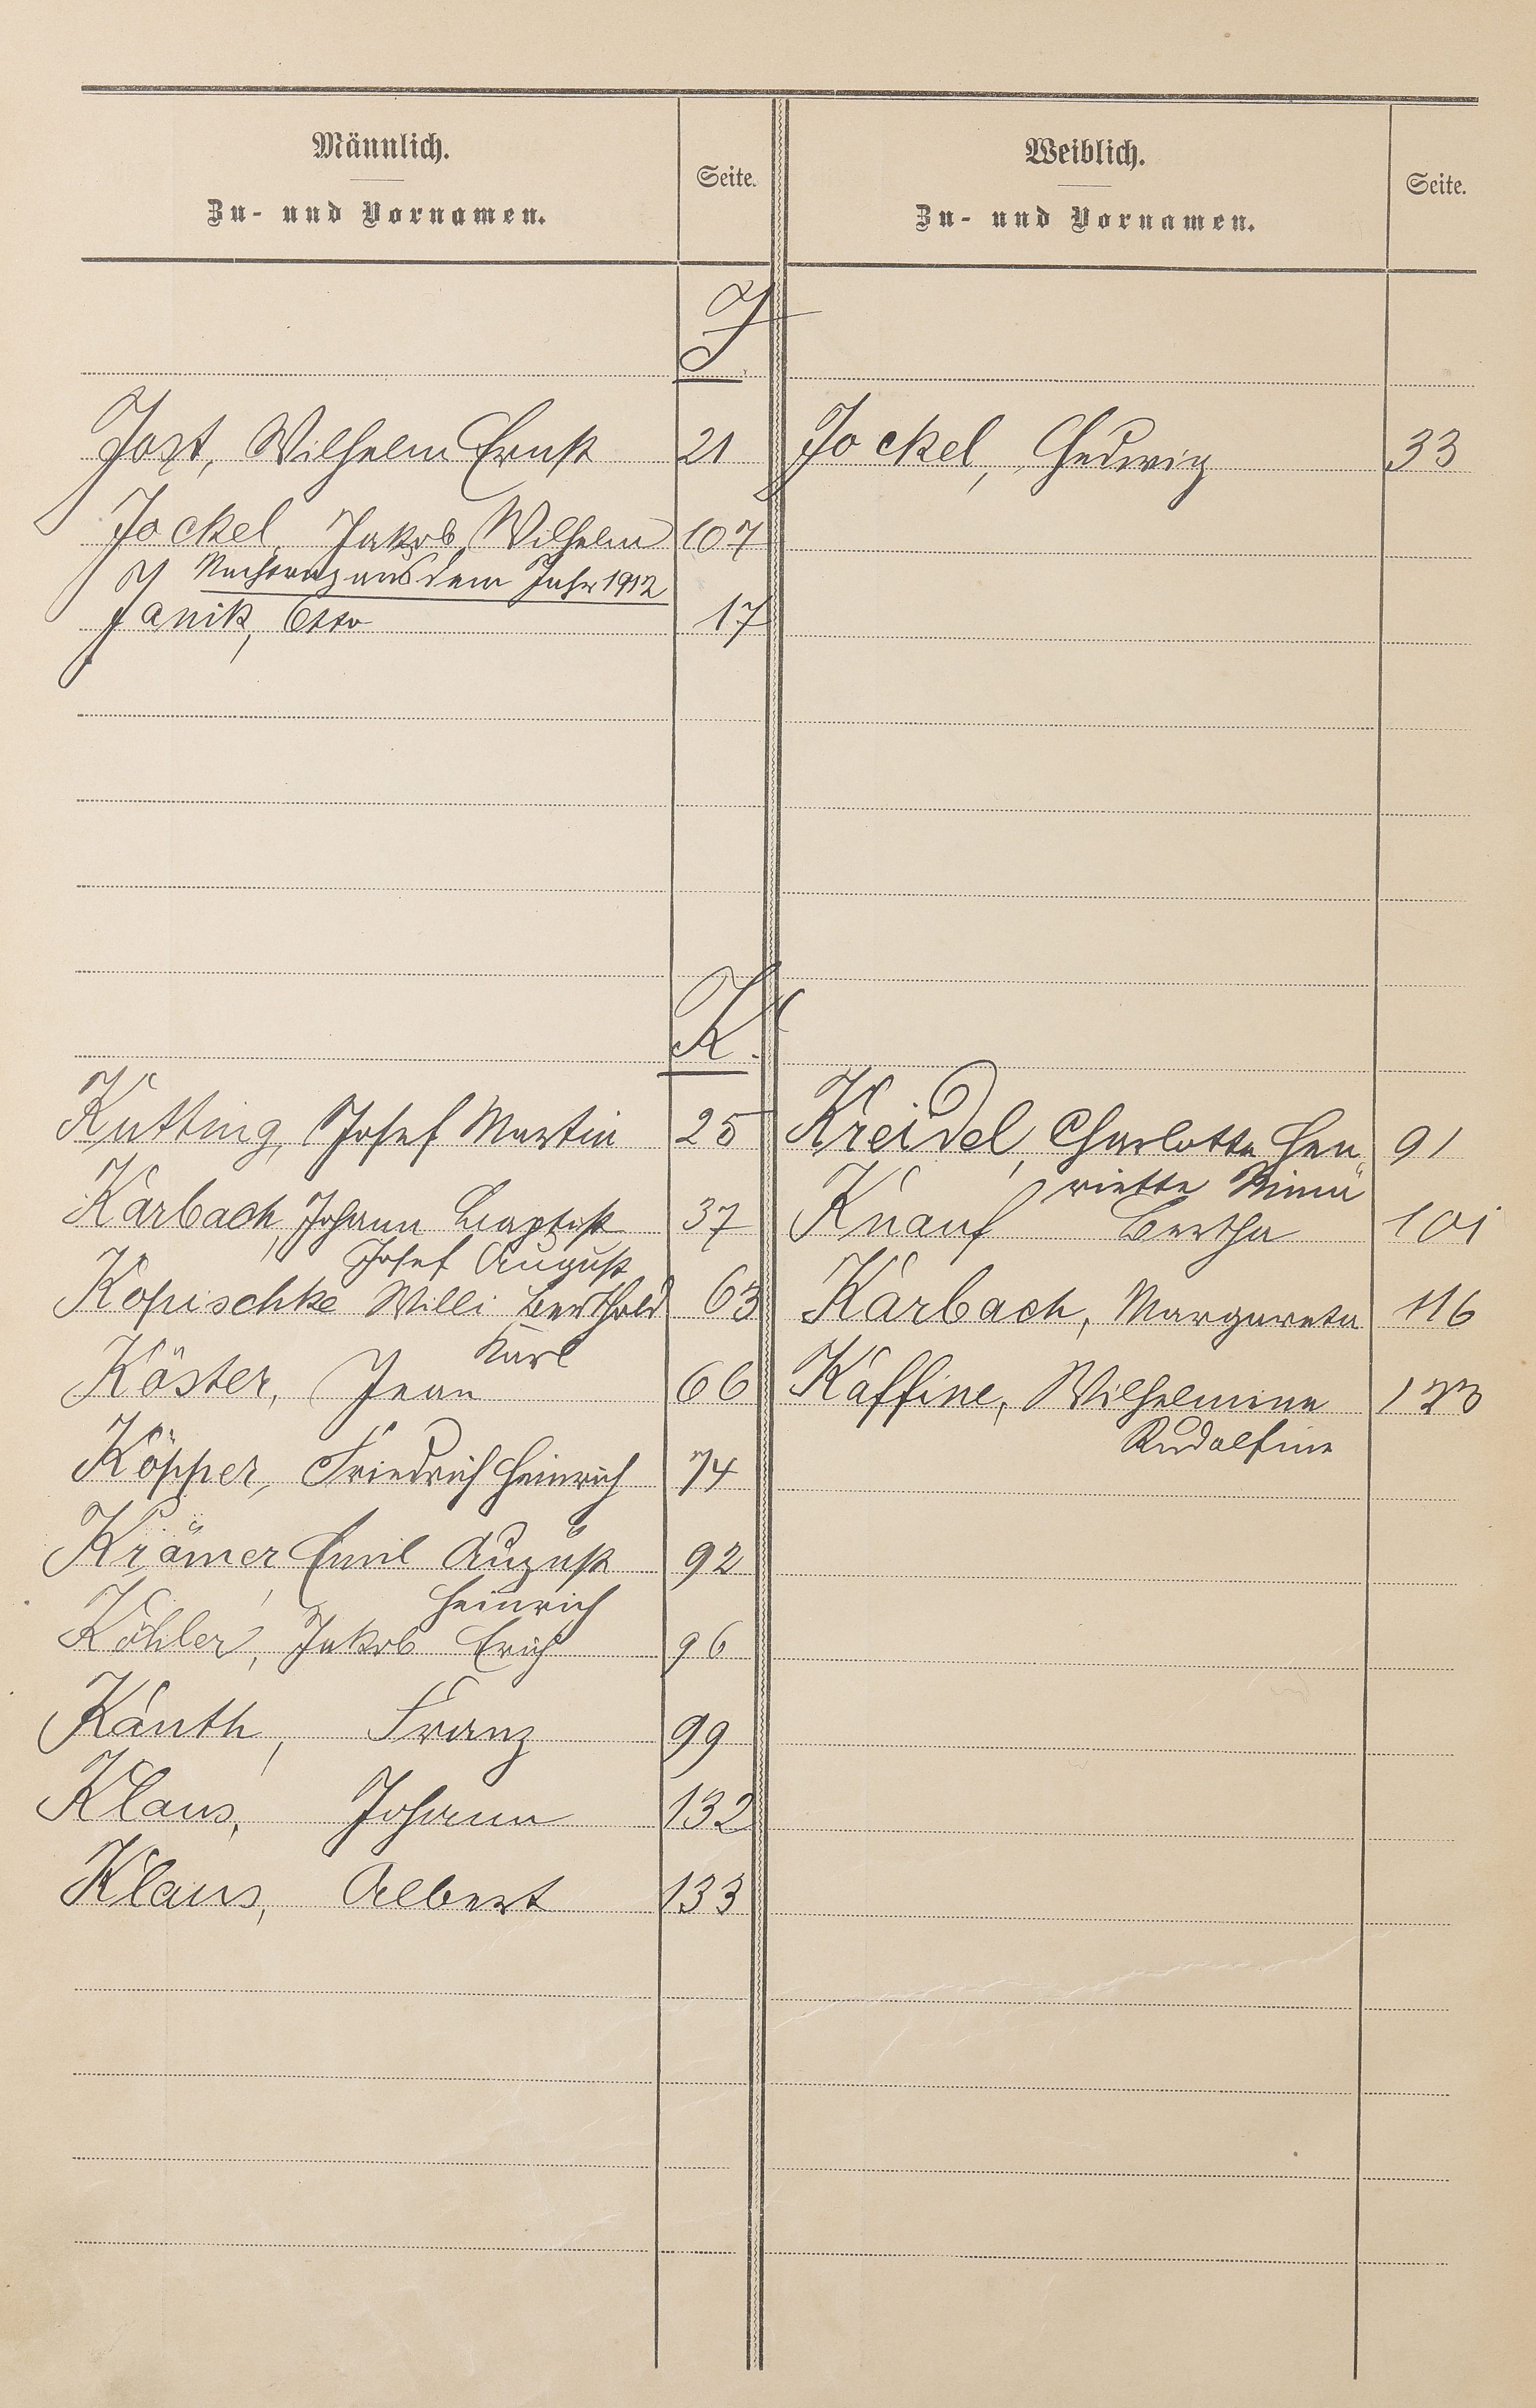 Männlich.
Zu- und Vornamen.
Seite.
Weiblich.
Zu- und Vornamen.
Seite.
J.
Jost, Wilhelm Ernst 21
Jockel, Hedwig 33
Jockel, Jakob Wilhelm 107
Nachtrag aus dem Jahr 1912
Janik, Otto 17
K.
Kutting, Josef Martin 25
Kreidel, Charlotte Hen 91
riette Minna
Karbach, Johann Baptist 37
Knauf Bertha 101
Josef August
Kopischke Willi Berthold 63
Karbach, Margareta 116
Karl
Köster, Jean 66
Kaffine, Wilhelmine 123
Rudolfine
Köpper, Friedrich Heinrich 74
Krämer, Emil August 92
Heinrich
Köhler, Jakob Erich 96
Kanth, Franz 99
Klaus, Johann 132
Klaus, Albert 133